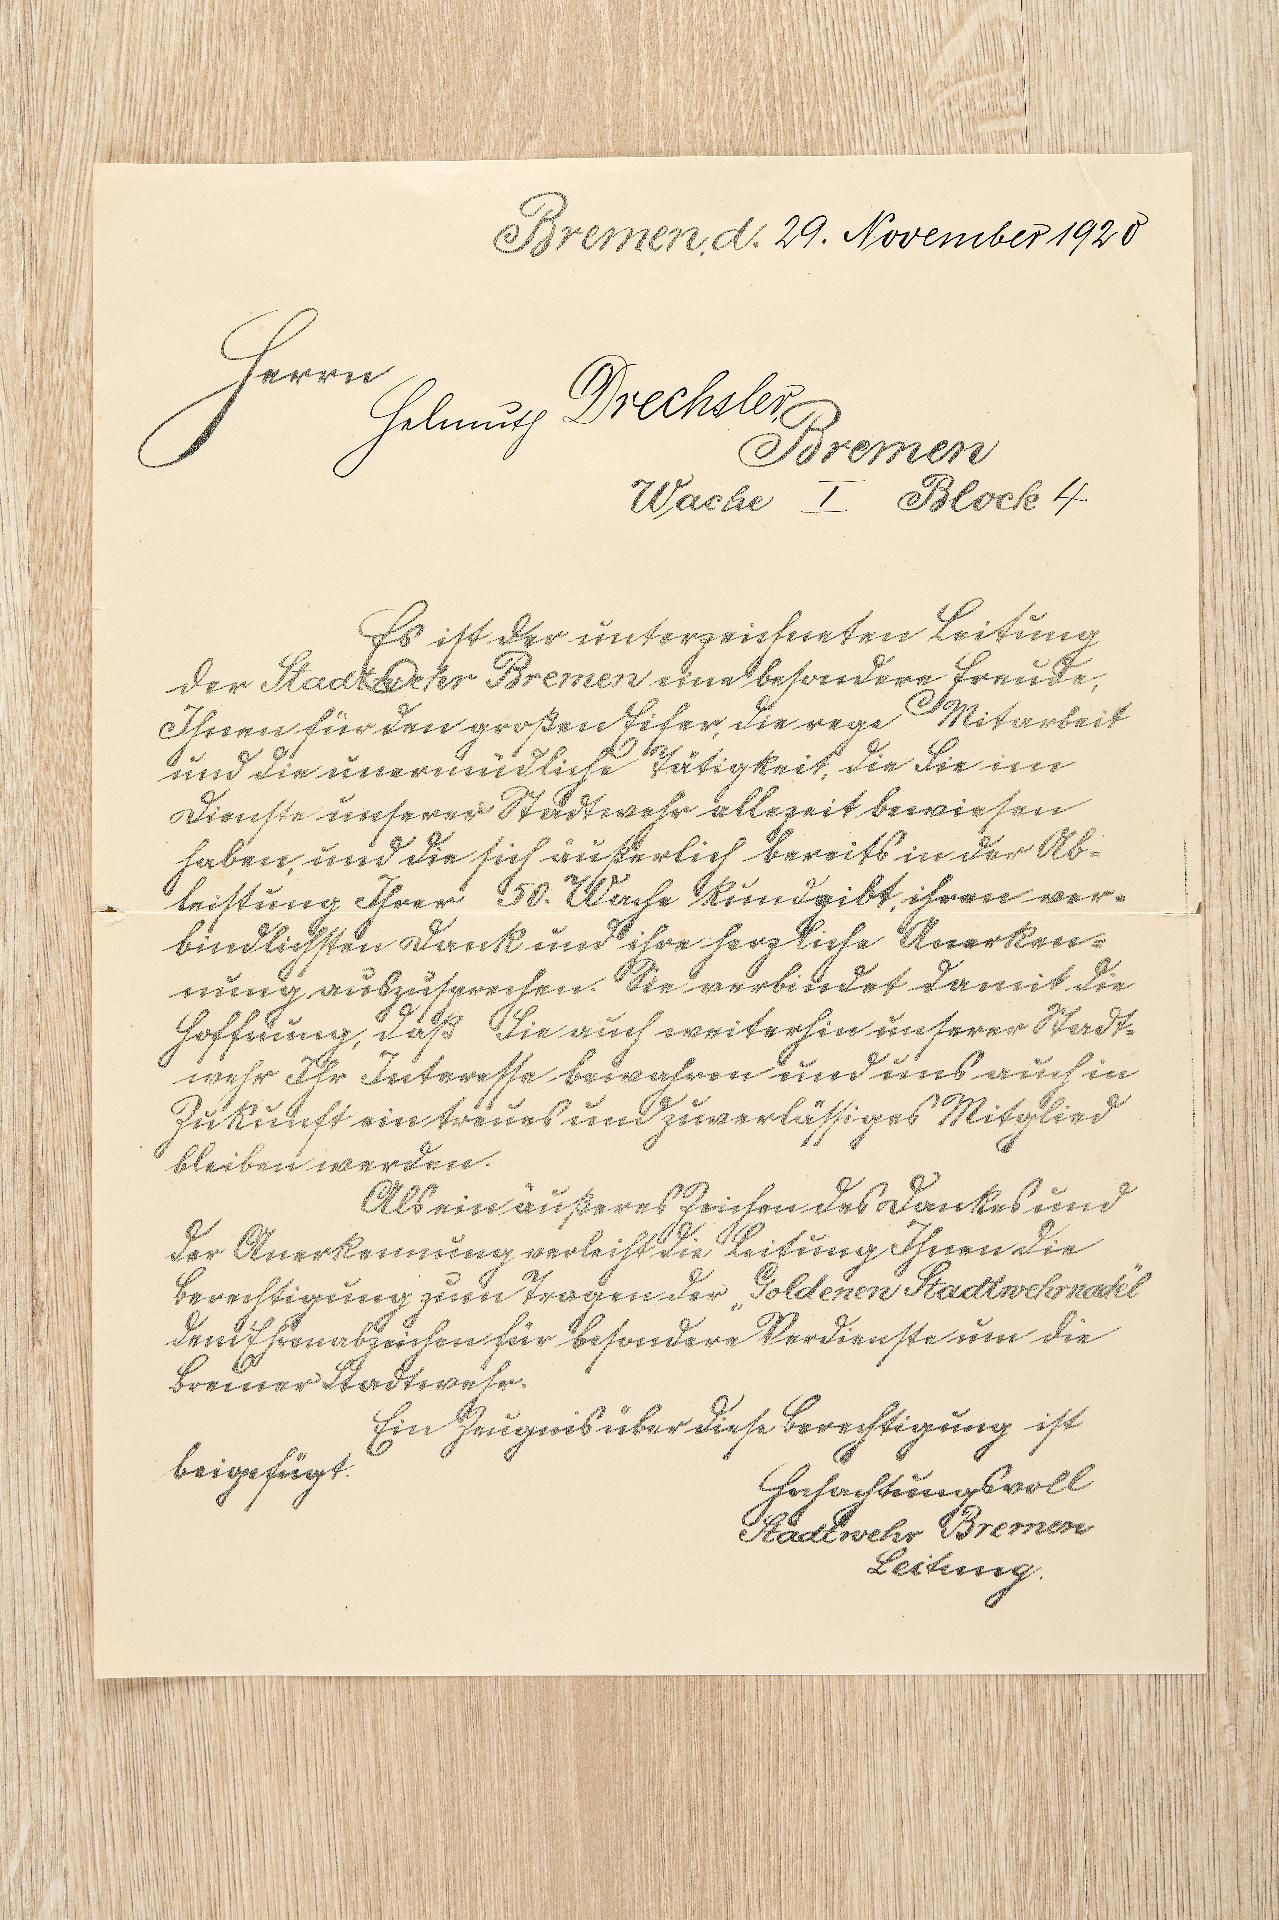 Bremen, d. 29. November 1920
Herrn
Helmuth Drechsler,
Bremen
Wache I Block 4
Es ist der unterzeichneten Leitung
der Stadtwehr Bremen eine besondere Freude,
Ihnen für den großen Eifer, die rege Mitarbeit
und die unermüdliche Tätigkeit, die Sie im
Dienste unserer Stadtwehr allezeit bewiesen
haben, und die sich äußerlich bereits in der Ab-
leistung Ihrer 50. Wache kundgibt, ihren ver-
bindlichsten Dank und ihre herzliche Anerken-
nung auszusprechen. Sie verbindet damit die
Hoffnung, daß Sie auch weiterhin unserer Stadt-
wehr Ihr Interesse bewahren und uns auch in
Zukunft ein treues und zuverlässiges Mitglied
bleiben werden.
Als ein äußeres Zeichen des Dankes und
der Anerkennung verleiht die Leitung Ihnen die
Berechtigung zum Tragen der „Goldenen Stadtwehrnadel"
dem Ehrenabzeichen für besondere Verdienste um die
Bremer Stadtwehr.
Ein Zeugnis über diese Berechtigung ist
beigefügt.
Hochachtungsvoll
Stadtwehr Bremen
Leitung.